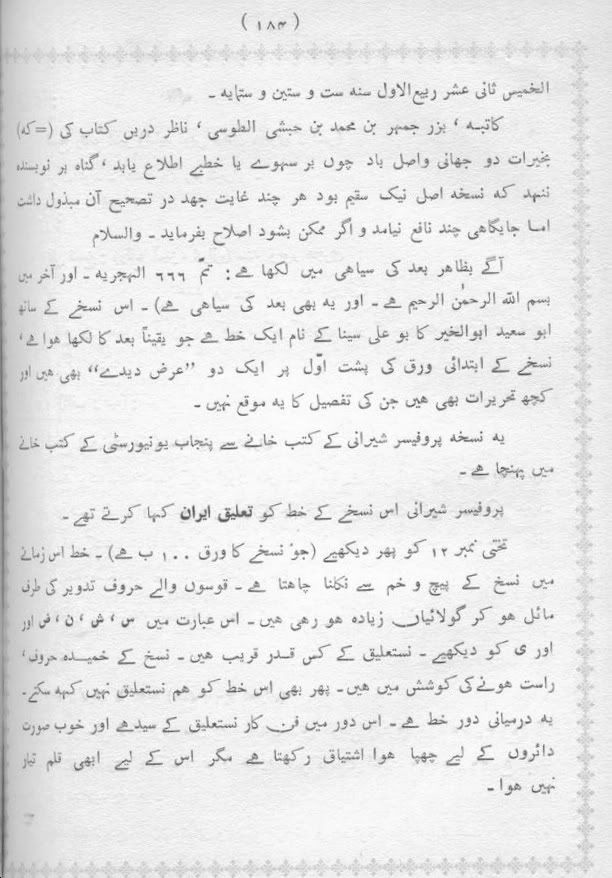 ( ۱۸۴ )
الخمیس ثانی عشر ربیع الاول سنه ست و ستین و ستمایه ۔
کاتبه ، بزر جمہر بن محمد بن حبشی الطوسی ، ناظر دریں کتاب کی (=که)
بخیرات دو جهانی واصل باد چوں بر سهوے یا خطبے اطلاع یابد ، گناه بر نویسنده
ننهد که نسخه اصل نیک سقیم بود هر چند غایت جهد در تصحیح آن مبذول داشت
اما جایگاهی چند نافع نیامد و اگر ممکن بشود اصلاح بفرماید ۔ والسلام
آگے بظاهر بعد کی سیاهی میں لکھا ہے : تمّ ۶۶۶ الهجریه ۔ اور آخر میں
بسم الله الرحمٰن الرحیم ہے ۔ اور یه بهی بعد کی سیاهی ہے) ۔ اس نسخے کے ساتھ
ابو سعید ابوالخیر کا بو علی سینا کے نام ایک خط ہے جو یقیناً بعد کا لکھا هوا ہے ،
نسخے کے ابتدائی ورق کی پشت اوّل پر ایک دو ”عرض دیدے“ بھی هیں اور
کچھ تحریرات بھی هیں جن کی تفصیل کا یه موقع نہیں ۔
یه نسخه پروفیسر شیرانی کے کتب خانے سے پنجاب یونیورسٹی کے کتب خانے
میں پہنچا ہے ۔
پروفیسر شیرانی اس نسخے کے خط کو تعلیق ایران کہا کرتے تھے ۔
تختی نمبر ۱۲ کو پھر دیکھیے (جو نسخے کا ورق ۱۰۰ ب ہے) ۔ خط اس زمانے
میں نسخ کے پیچ و خم سے نکلنا چاهتا ہے ۔ قوسوں والے حروف تدویر کی طرف
مائل هو کر گولائیاں زیاده هو رهی هیں ۔ اس عبارت میں س ، ش ، ن ، ض اور
اور ی کو دیکھیے ۔ نستعلیق کے کس قدر قریب هیں ۔ نسخ کے خمیده حروف ،
راست هونے کی کوشش میں هیں ۔ پھر بھی اس خط کو هم نستعلیق نہیں کہه سکتے ۔
یه درمیانی دور خط ہے ۔ اس دور میں فن کار نستعلیق کے سیدھے اور خوب صورت
دائروں کے لیے چھپا هوا اشتیاق رکھتا ہے مگر اس کے لیے ابھی قلم تیار
نہیں هوا ۔